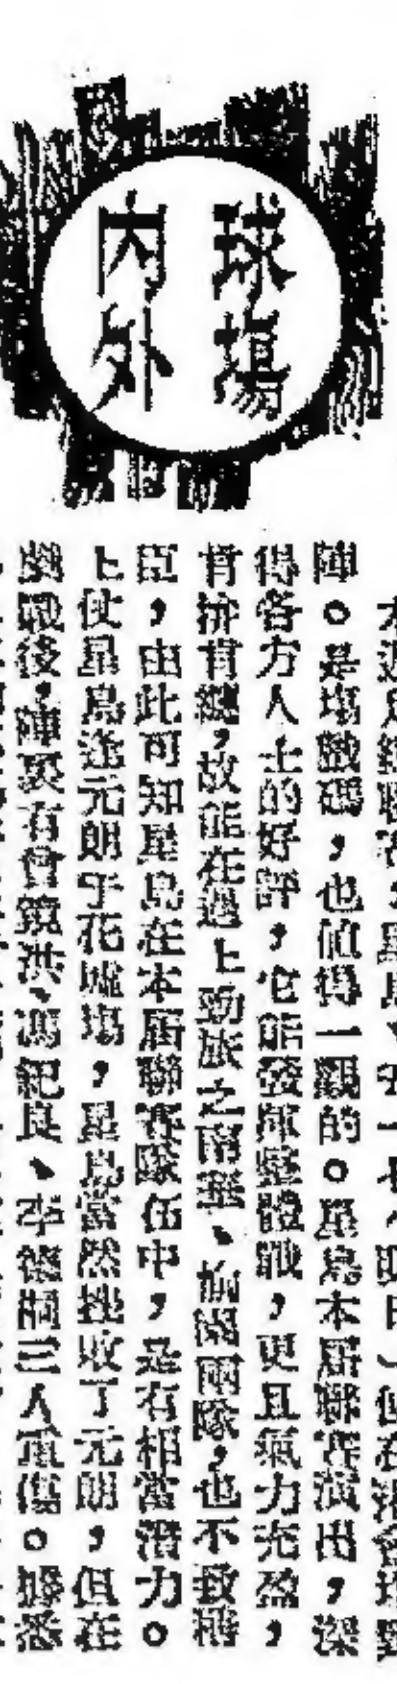 球場
內外
陣。是場戲碼，也值得一觀的。星島本屆聯賽演出，深
得各方人士的好評，它能發揮整體戰，更且氣力充盈，
肯拚肯纏，故能在遇上勁旅之南華、愉園兩隊，也不致稱
臣，由此可知星島在本屆聯賽隊伍中，是有相當潛力。
上仗星島逢元朗于花墟場，星島當然挫敗了元朗，但在
劇戰後，陣裏有曾鏡洪、馮紀良、李德桐三人重傷。據悉